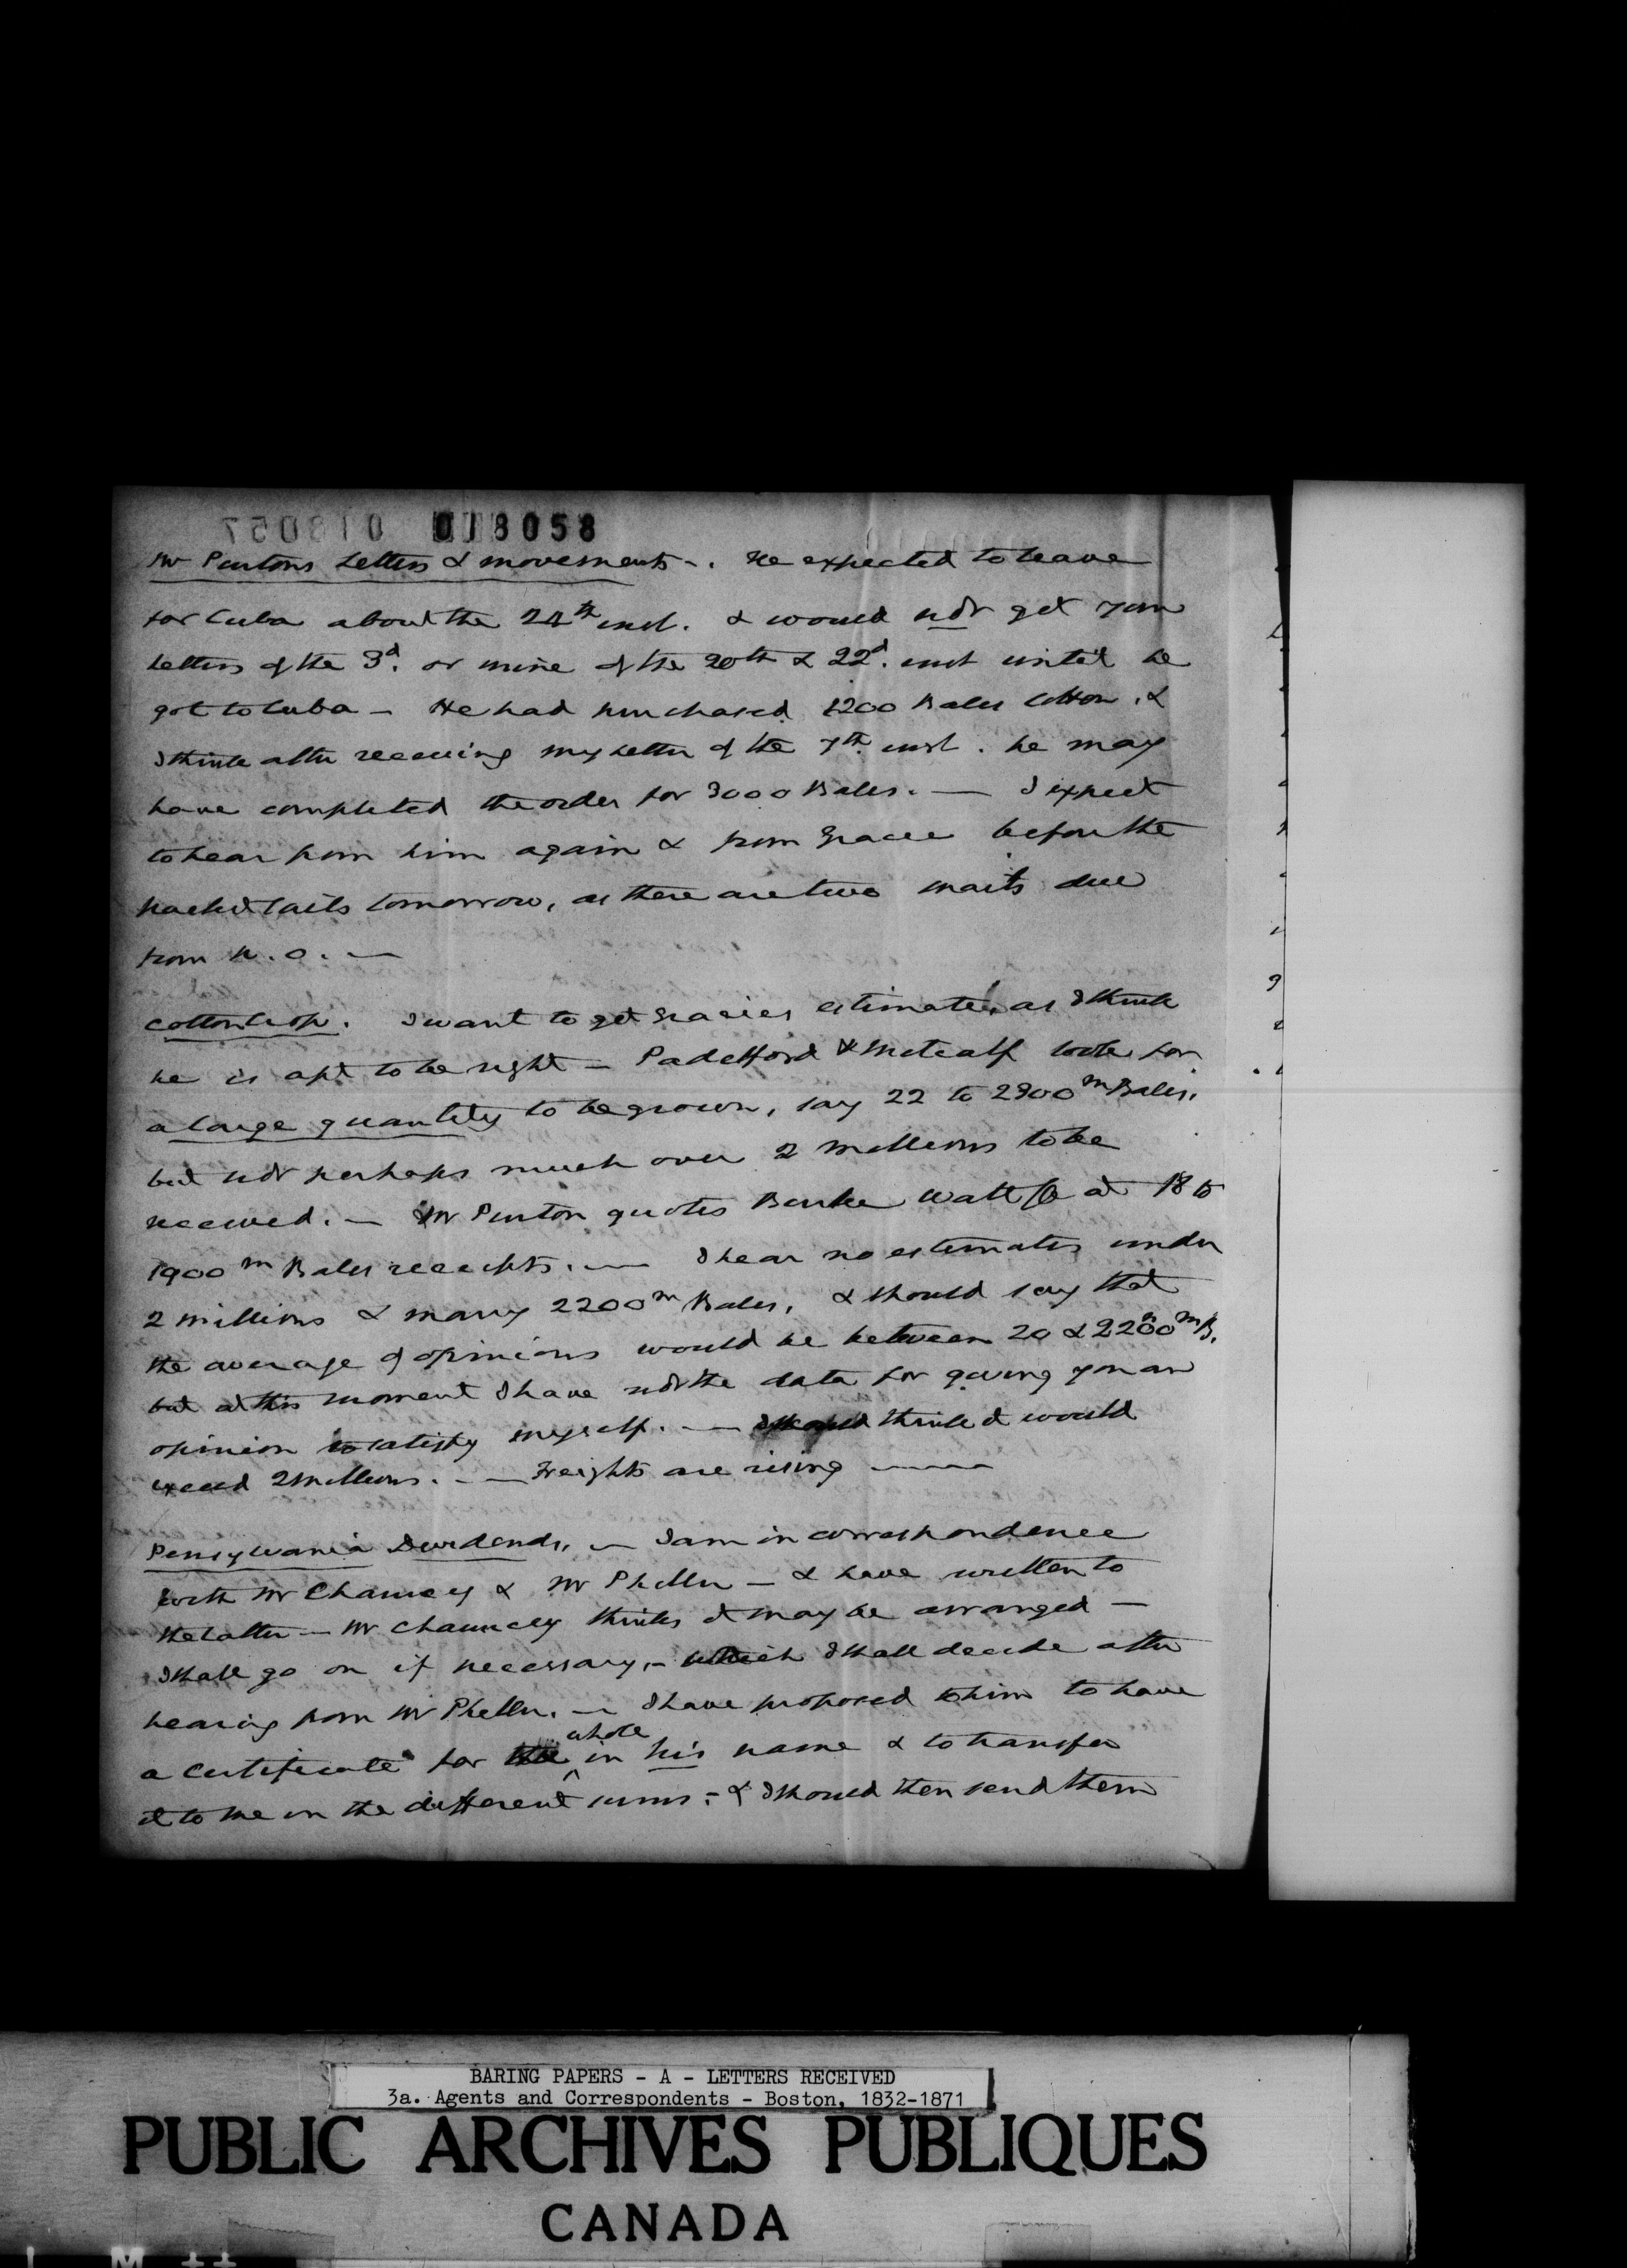 018057 018058
Mr Purtons Letters & movements -. He expected to leave
for Cuba about the 24th inst. & would not get your
letters of the 3d. or mine of the 20th & 22d. inst until he
got to Cuba – He had purchased 1200 Bales Cotton, &
I think after receiving my letter of the 7th inst. he may
have completed the order for 3000 Bales. — I expect
to hear from him again & from Gracie before the
packet sails tomorrow, as there are two mails due
from N.O. —
Cotton Crop. I want to get Gracies estimate, as I think
he is apt to be right – Padelford & Metcalf look for
a large quantity to be grown, say 22 to 2300m Bales,
but not perhaps much over 2 millions to be
received. — Mr Purton quotes Burke Watt & Co at 18 to
1900m Bales receipts. — I hear no estimates under
2 millions & many 2200m Bales, & should say that
the average of opinions would be between 20 & 2200m B.
but at this moment I have not the data for giving you an
opinion to satisfy myself. — I should think it would
exceed 2 millions. — Freights are rising —
Pensylvania Dividends, — I am in correspondence
with Mr Chauncey & Mr Pheller – & have written to
the latter — Mr Chauncey thinks it may be arranged —
I shall go on if necessary, – which I shall decide after
hearing from Mr Pheller. — I have proposed to him to have
a Certificate for the whole in his name & to transfer
it to me in the different sums; – & I should then send them
BARING PAPERS - A - LETTERS RECEIVED
3a. Agents and Correspondents - Boston, 1832-1871
PUBLIC ARCHIVES PUBLIQUES
CANADA